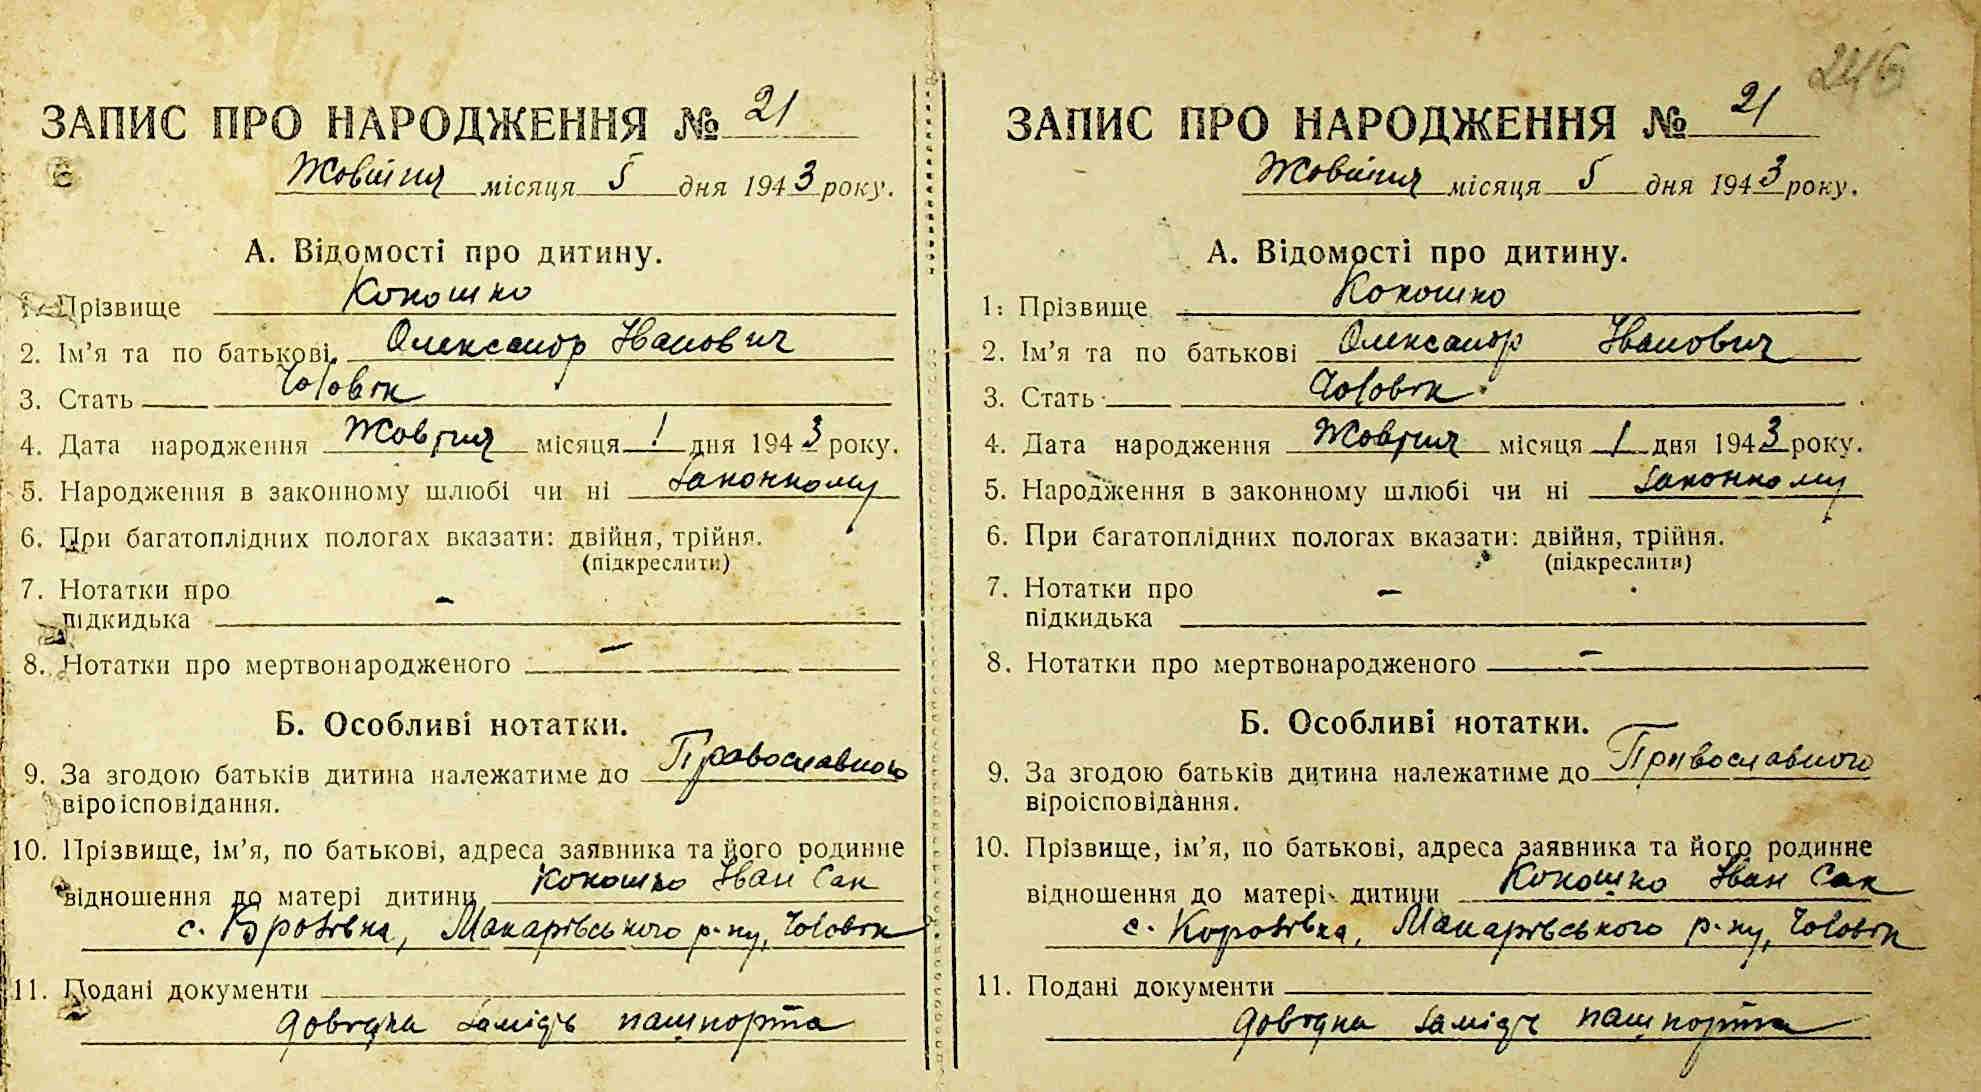 246
ЗАПИС ПРО НАРОДЖЕННЯ № 21
Жовтня місяця 5 дня 1943 року.
А. Відомості про дитину.
1. Прізвище Кокошко
2. Ім'я та по батькові Олександр Іванович
3. Стать Чоловік
4. Дата народження Жовтня місяця 1 дня 1943 року.
5. Народження в законному шлюбі чи ні законному
6. При багатоплідних пологах вказати: двійня, трійня.
(підкреслити)
7. Нотатки про
підкидька –
8. Нотатки про мертвонародженого –
Б. Особливі нотатки.
9. За згодою батьків дитина належатиме до Православного
віроісповідання.
10. Прізвище, ім'я, по батькові, адреса заявника та його родинне
відношення до матері дитини Кокошко Іван Сак
с. Королівка, Макарівського р-ну, Чоловік
11. Подані документи
довідка замідь пашпорта
ЗАПИС ПРО НАРОДЖЕННЯ № 21
Жовтня місяця 5 дня 1943 року.
А. Відомості про дитину.
1. Прізвище Кокошко
2. Ім'я та по батькові Олександр Іванович
3. Стать Чоловік
4. Дата народження Жовтня місяця 1 дня 1943 року.
5. Народження в законному шлюбі чи ні законному
6. При багатоплідних пологах вказати: двійня, трійня.
(підкреслити)
7. Нотатки про
підкидька –
8. Нотатки про мертвонародженого –
Б. Особливі нотатки.
9. За згодою батьків дитина належатиме до Православного
віроісповідання.
10. Прізвище, ім'я, по батькові, адреса заявника та його родинне
відношення до матері дитини Кокошко Іван Сак
с. Королівка, Макарівського р-ну, Чоловік
11. Подані документи
довідка замідь пашпорта